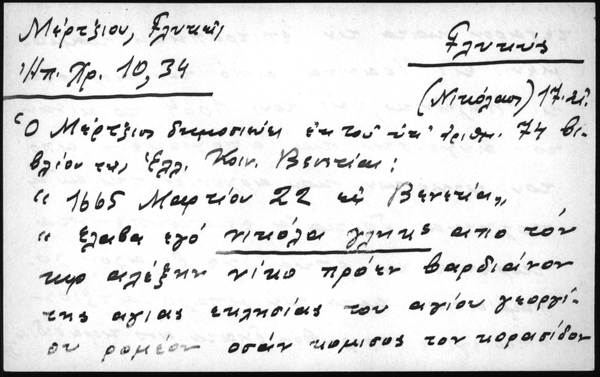 Μέρτζιου, Γλυκεῖς
Γλυκύς
Ἠπ. Χρ. 10, 34
(Νικόλαος) 17. αἰ.
Ὁ Μέρτζιος δημοσιεύει ἐκ τοῦ ὑπ' ἀριθμ. 74 βι-
βλίου τῆς Ἑλλ. Κοιν. Βενετίας:
"1665 Μαρτίου 22 Βενετία"
"έλαβα εγό νικόλα γληκης απο τόν
κυρ αλέξην νίκο πρόεν βαρδιάνον
της αγιας εκλησίας του αγίου γεοργί-
ου ρομέον οσάν κομισος τον κορασίδον